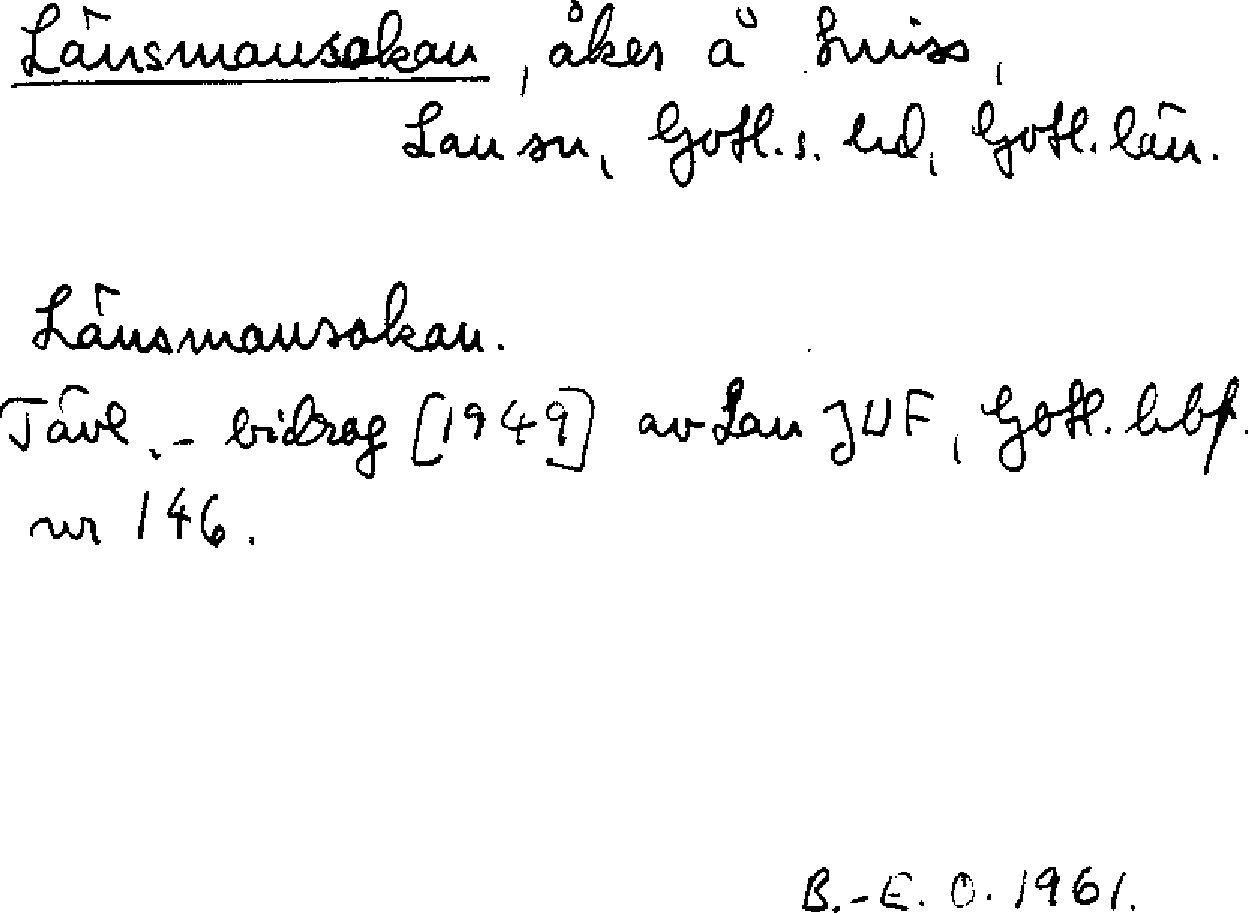 Länsmansakau, åker å Smiss,
Lau sn, Gotl. s. hd, Gotl. län.
Länsmansakau.
Tävl.-bidrag [1949] av Lau JUF, Gotl. hbf.
nr 146.
B.-E. O. 1961.